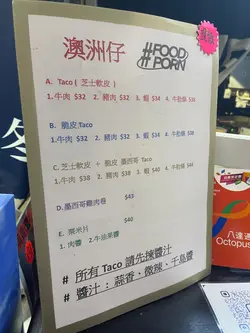 澳洲仔
#FOOD
#PORN
A. Taco ( 芝士軟皮 )
1.牛肉 $32 2. 豬肉 $32 3. 蝦 $34 4. 牛肚條 $38
B. 脆皮 Taco
1.牛肉 $32 2. 豬肉 $32 3. 蝦 $34 4. 牛肚條 $38
C.芝士軟皮 + 脆皮 墨西哥 Taco
1.牛肉 $38 2. 豬肉 $38 3. 蝦 $40 4. 牛肚條 $44
D.墨西哥雞肉卷 $43
E. 粟米片 $40
1. 肉醬 2.牛油果醬
# 所有 Taco 請先揀醬汁
# 醬汁 : 蒜香、微辣、千島醬
八達通
Octopus